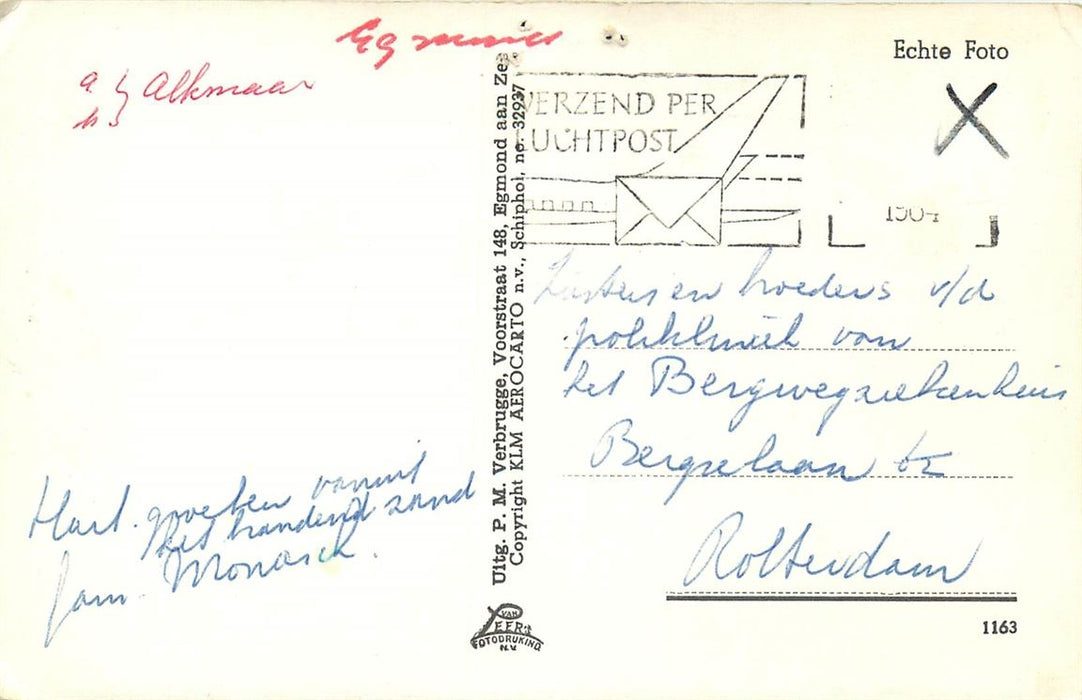 Alkmaar
Echte Foto
VERZEND PER
LUCHTPOST
Uitg. P. M. Verbrugge, Voorstraat 148, Egmond aan Zee
Copyright KLM AEROCARTO n.v., Schiphol, no. 32937
Zusters en broeders v/d
polikliniek van
het Bergwegziekenhuis
Bergselaan
Rotterdam
Hart. groeten vanuit
het brandend zand
fam. Monasch.
VAN
LEER's
FOTODRUKIND.
N.V.
1163